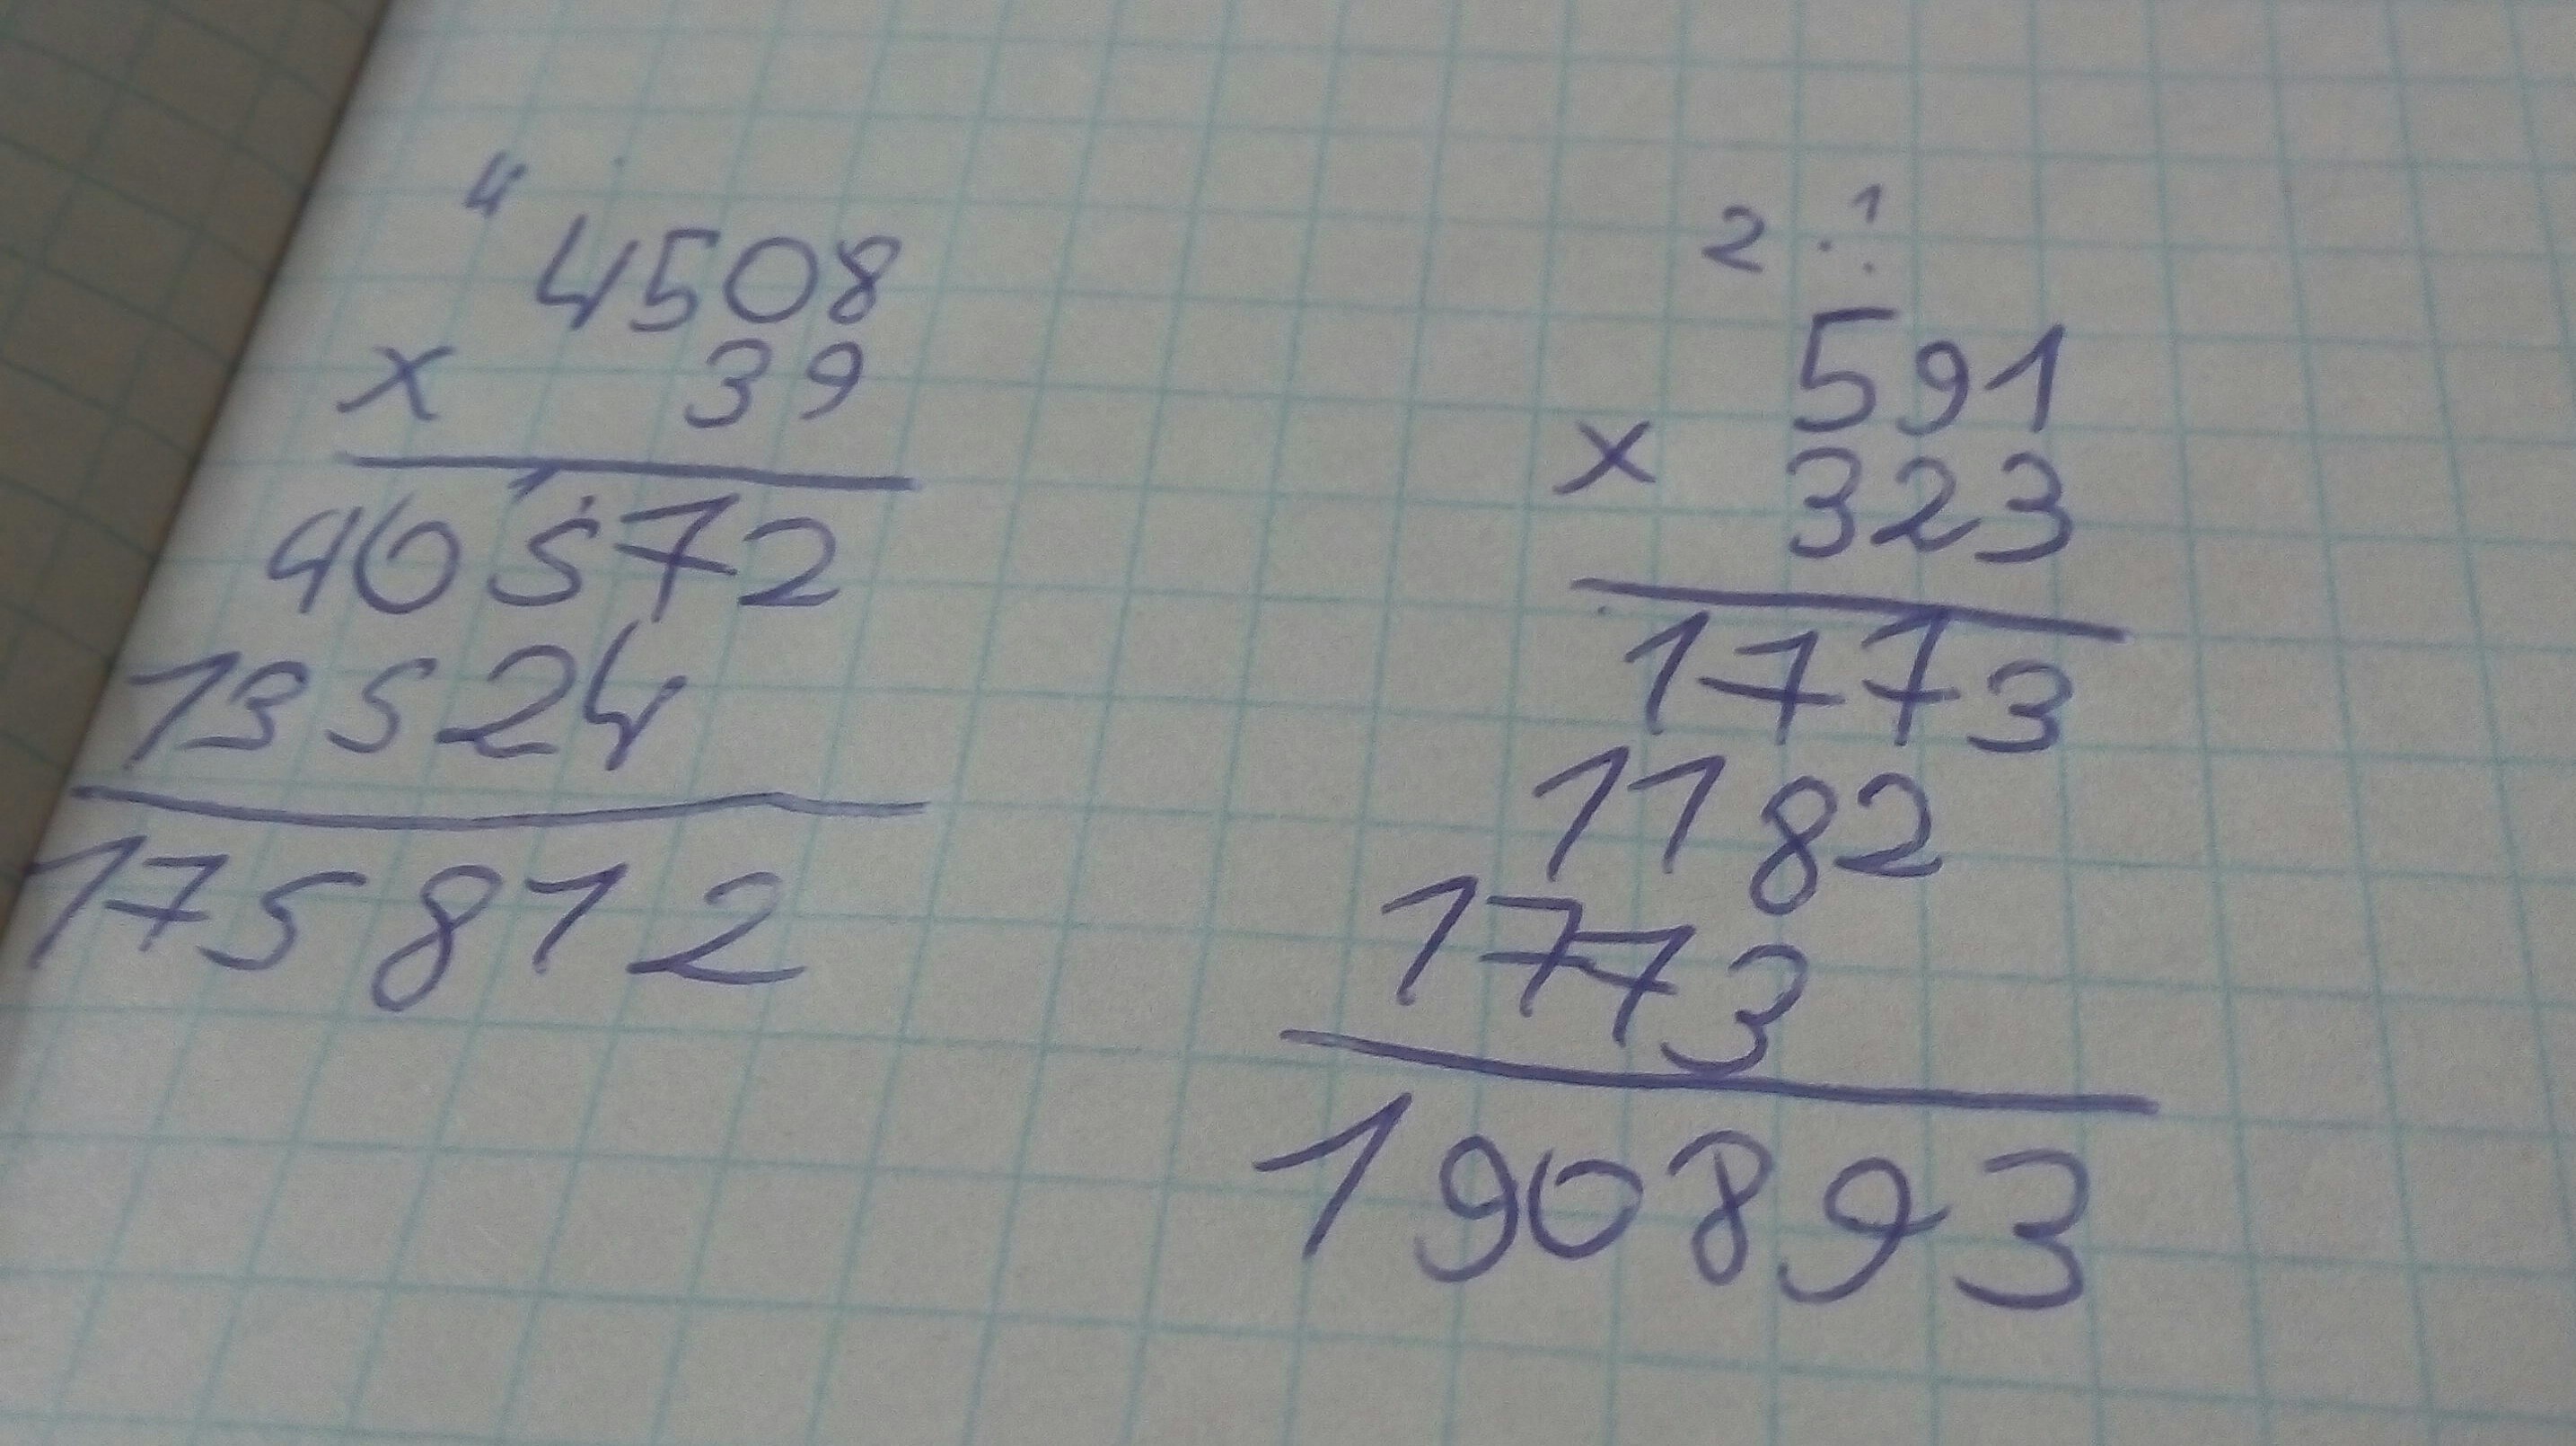 4
4508
x 39
1
40572
13524
175812
2 1
591
x 323
1773
1182
1773
190893